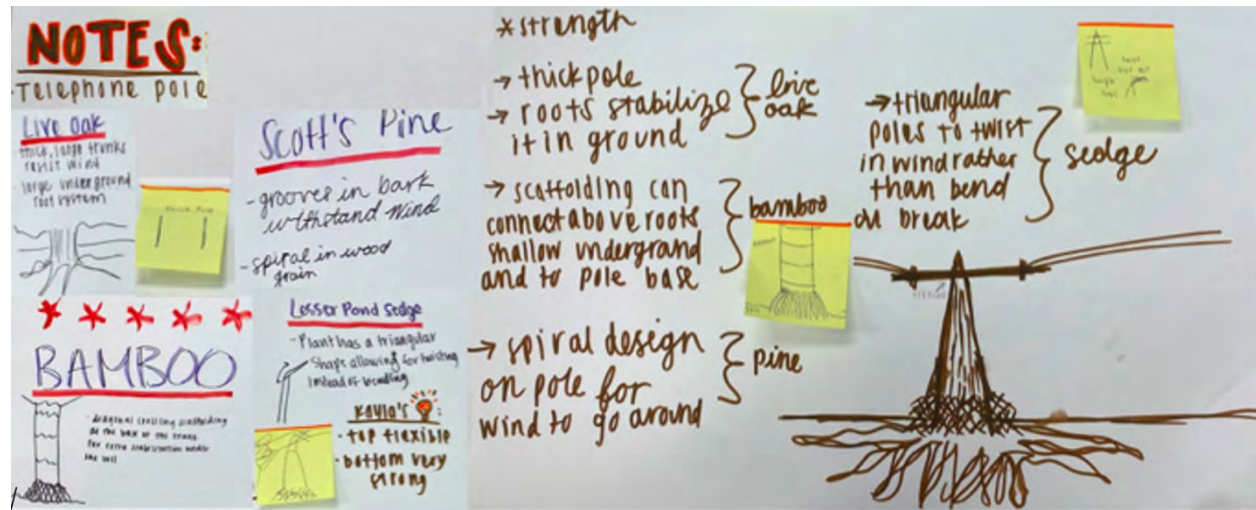 NOTES:
- Telephone pole
Live Oak
thick, large trunks
resist wind
- large underground
root system
SCOTT'S PINE
- grooves in bark
withstand wind
- spiral in wood
grain
BAMBOO
- diagonal crossing scaffolding
at the base of the trunk
for extra stabilization under
the soil
Lesser Pond Sedge
- Plant has a triangular
shape allowing for twisting
instead of bending
Kayla's :
- top flexible
- bottom very
strong
* strength
→ thick pole
→ roots stabilize
it in ground
live
oak
→ scaffolding can
connect above roots
shallow underground
and to pole base
bamboo
→ spiral design
on pole for
wind to go around
pine
→ triangular
poles to twist
in wind rather
than bend
or break
sedge